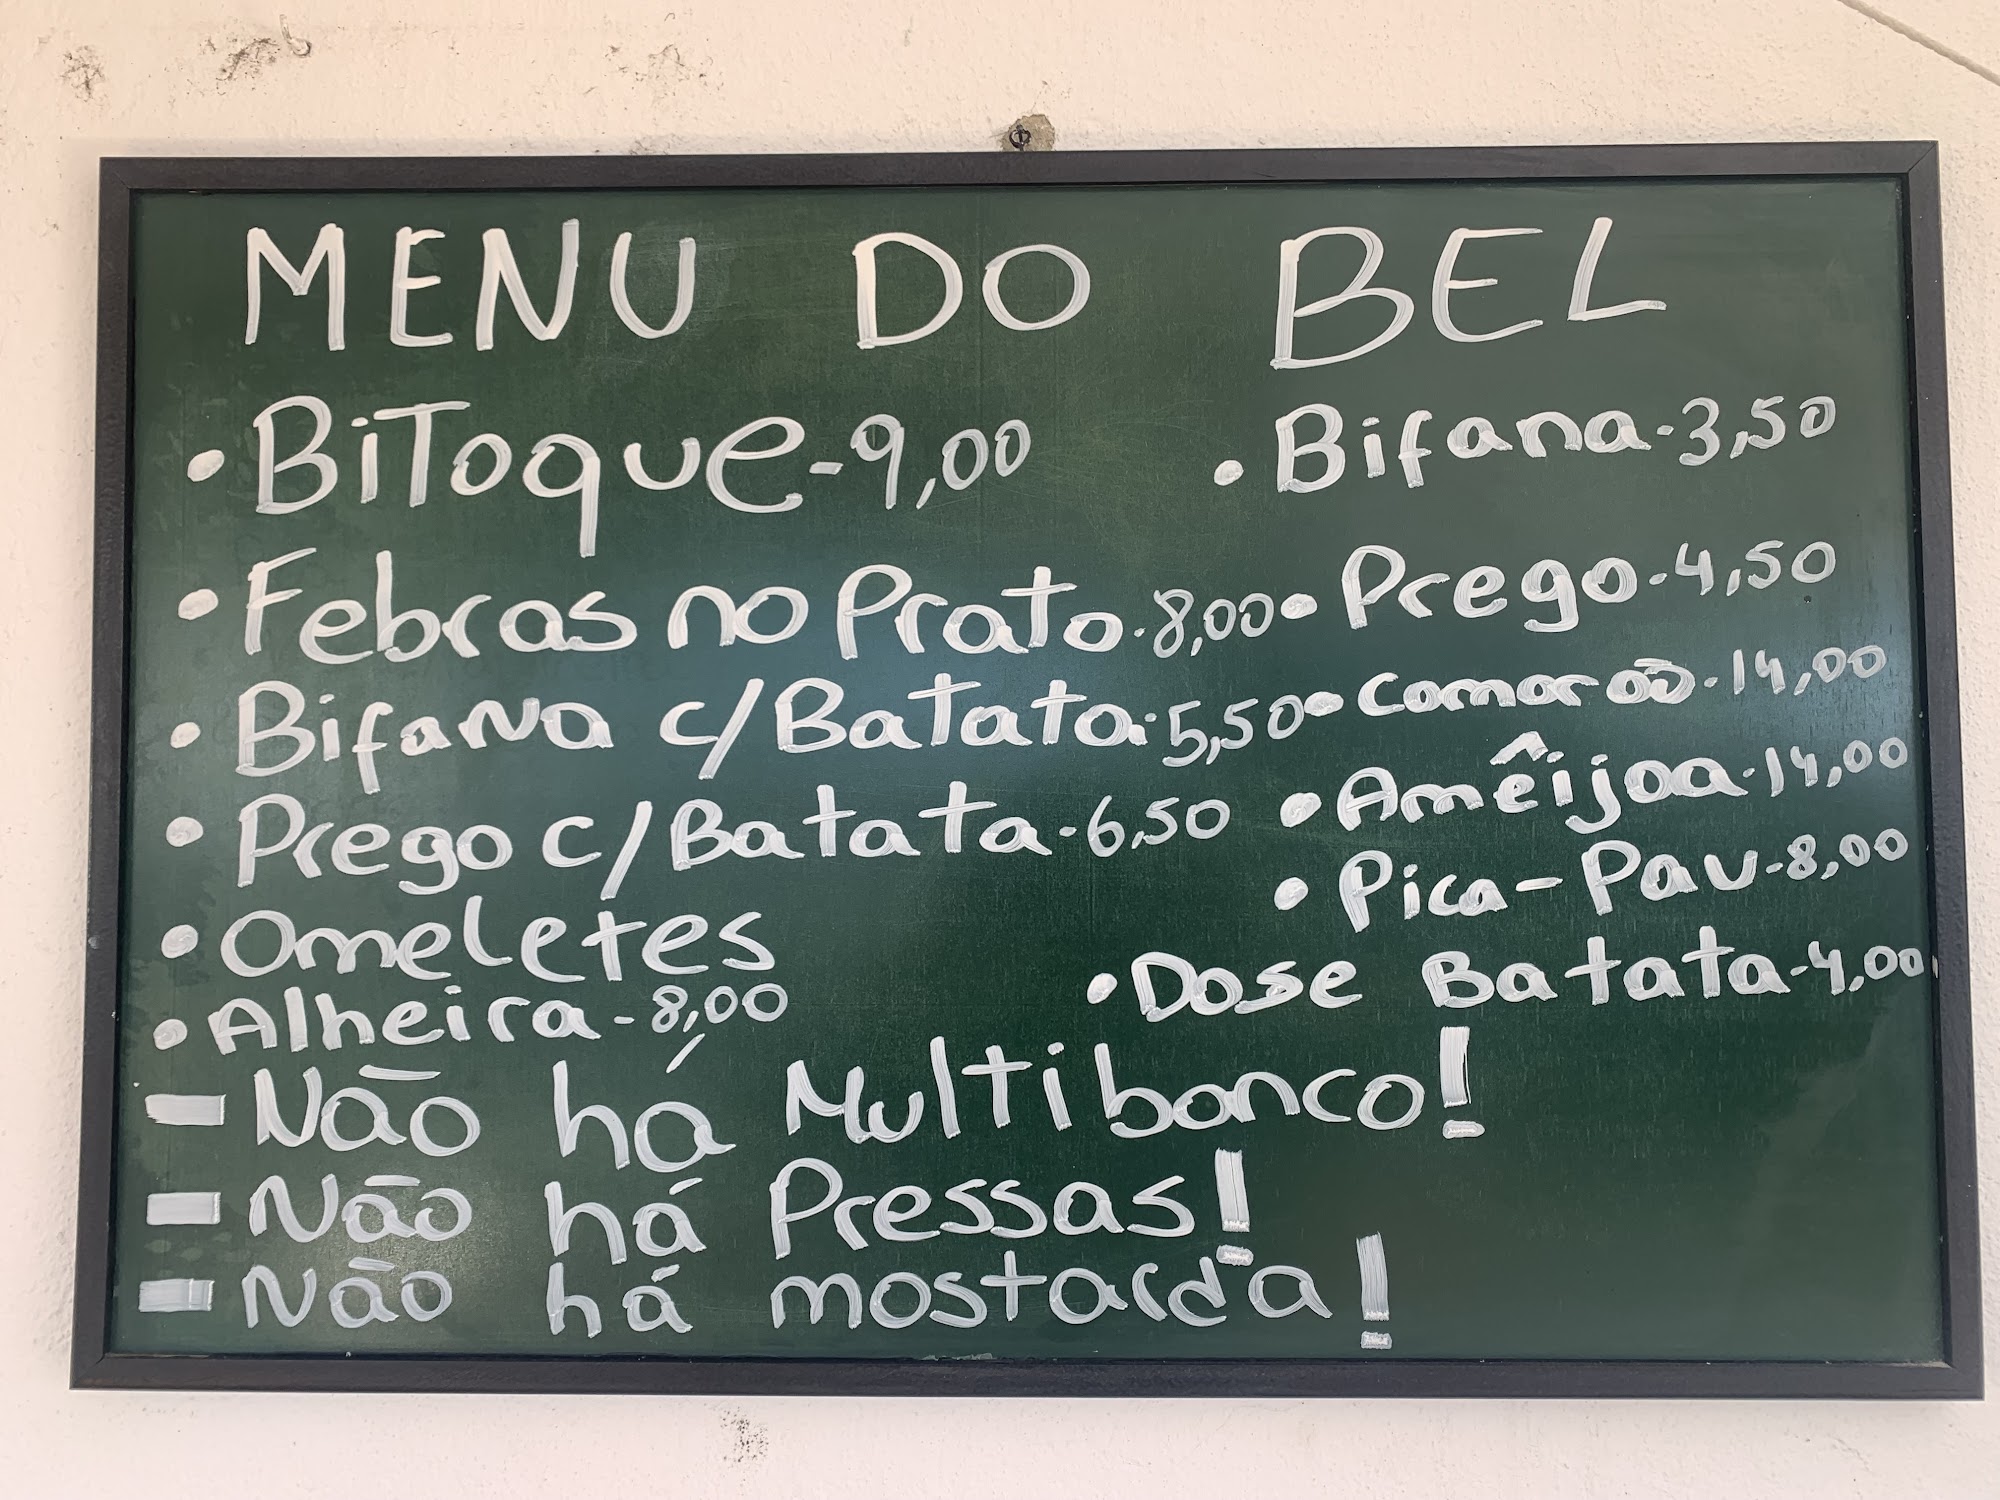 MENU DO BEL
• BiToque-9,00
• Febras no Prato.8,00
• Bifana c/Batata.5,50
• Prego c/Batata.6,50
• Omeletes
• Alheira-8,00
• Bifana.3,50
• Prego.4,50
• Camarão.14,00
• Amêijoa.14,00
• Pica-Pau-8,00
• Dose Batata-4,00
- Não há Multibanco!
- Não há Pressas!
- Não há mostarda!